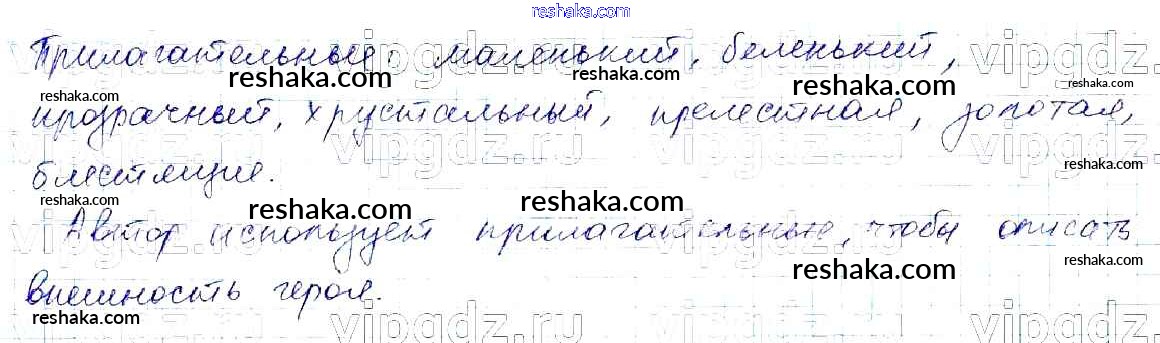 reshaka.com
Прилагательные: маленький, беленький,
прозрачный, хрустальный, прелестная, золотая,
блестящие.
Автор использует прилагательные, чтобы описать
внешность героя.
reshaka.com
reshaka.com
reshaka.com
reshaka.com
reshaka.com
reshaka.com
reshaka.com
reshaka.com
reshaka.com
reshaka.com
reshaka.com
reshaka.com
reshaka.com
vipgdz.ru
vipgdz.ru
vipgdz.ru
vipgdz.ru
vipgdz.ru
vipgdz.ru